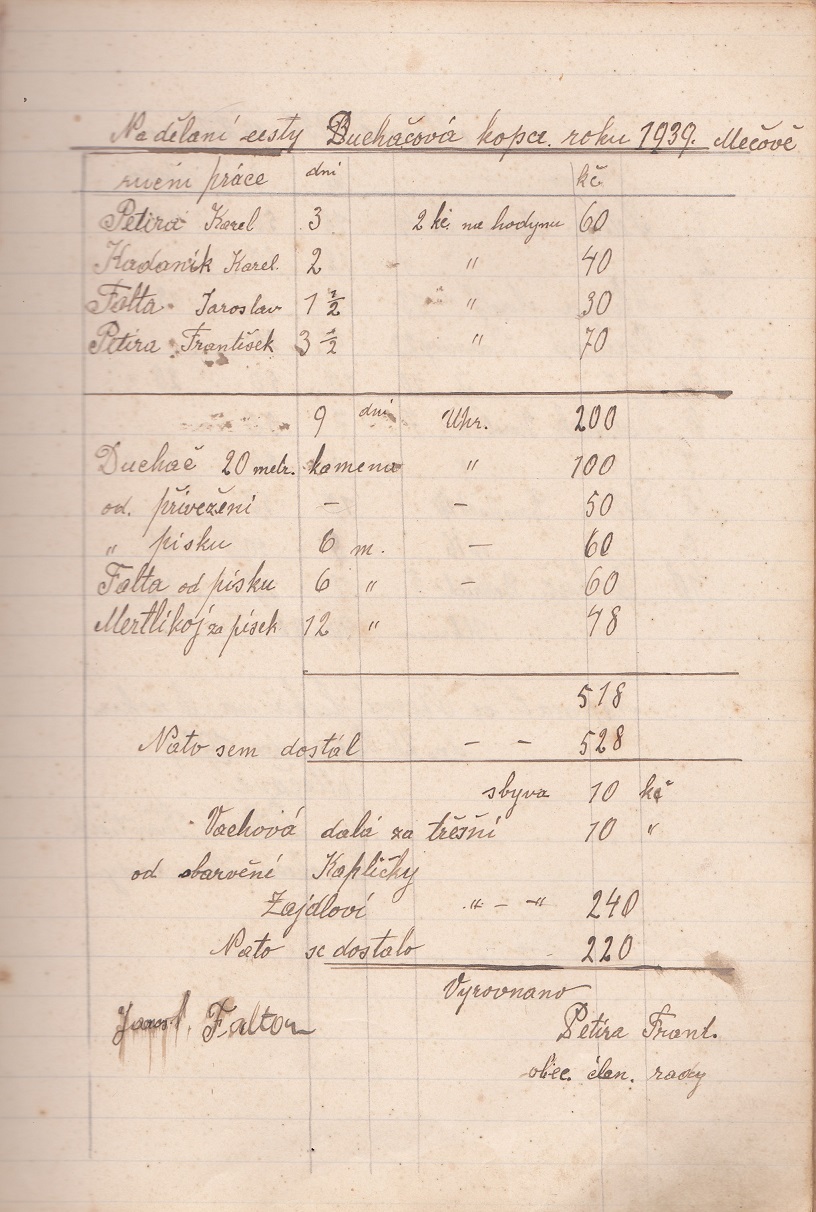 Na dělaní cesty Ducháčová kopce. roku 1939. Mečově
ruční práce dni kč.
Petira Karel 3 2 kč. na hodynu 60
Kadaník Karel. 2 " 40
Falta Jaroslav 1 1/2 " 30
Petira František 3 1/2 " 70
9 dni Uhr. 200
Duchač 20 metr. kamena " 100
od. přivežení – – 50
" písku 6 m. – 60
Falta od písku 6 " – 60
Mertlíkoj za písek 12 " 48
518
Nato sem dostál – – 528
sbyva 10 kč
Vachová dalá za třešní 10 "
od obarvění Kapličky
Zajdloví " – " 240
Nato se dostalo 220
Vyrovnano
Jarosl. Falton Petira Frant.
obec. člen. rady